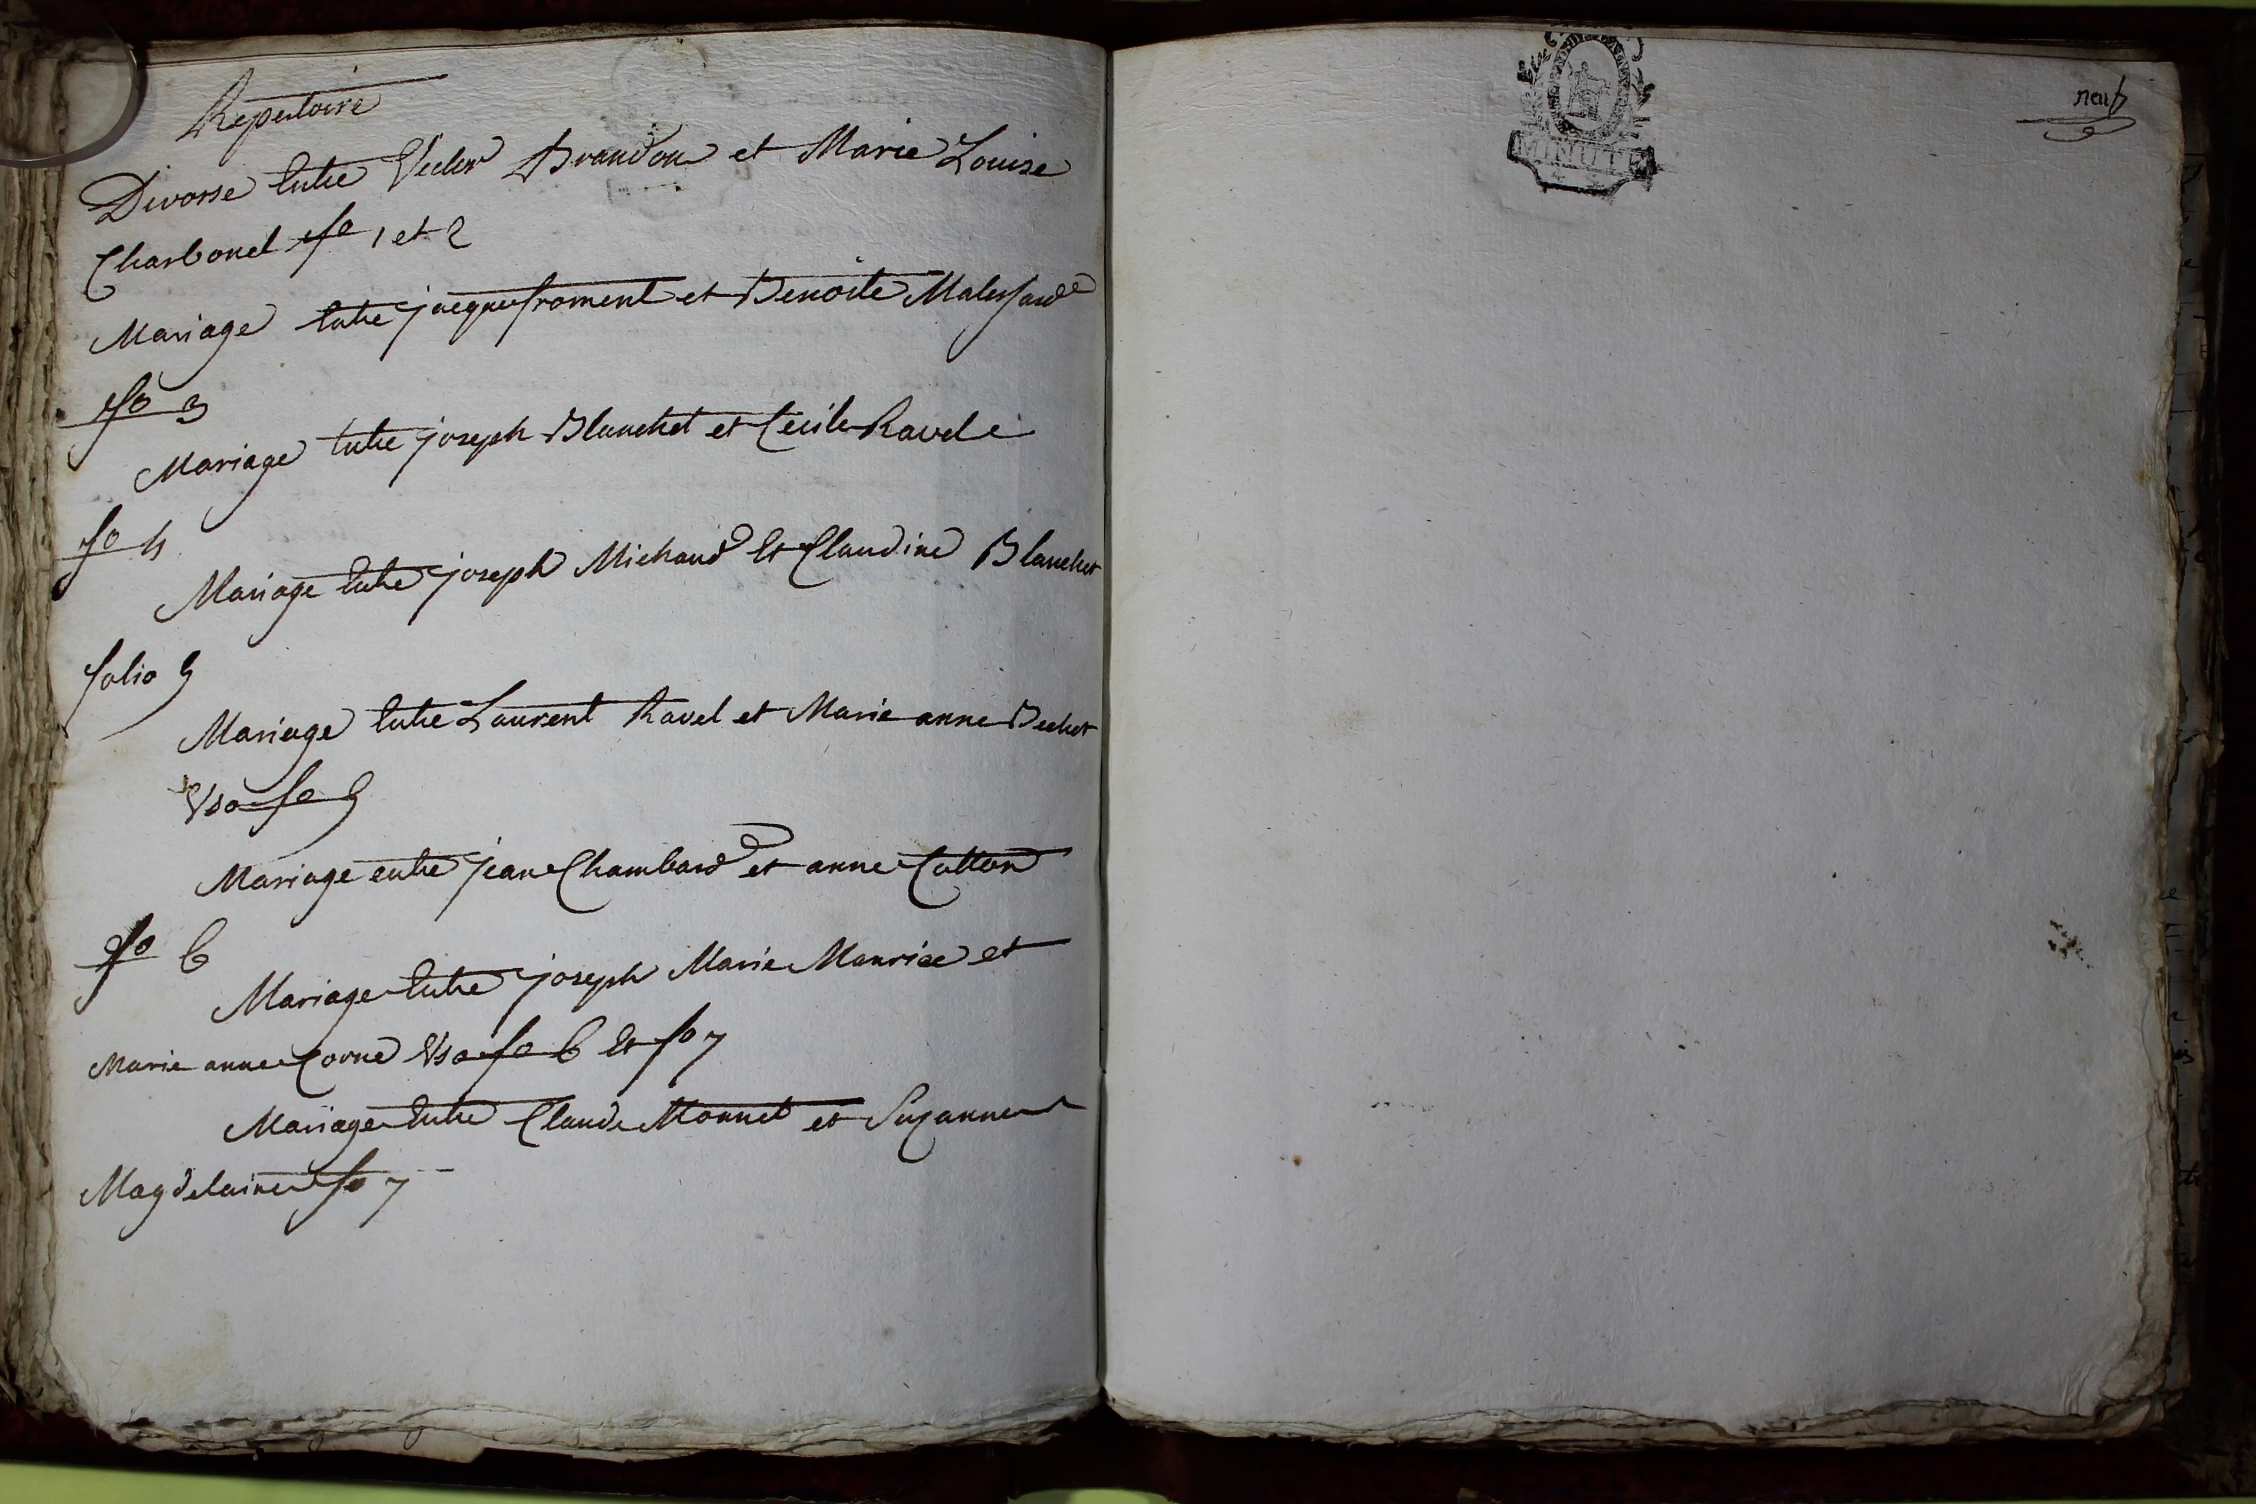 Repertoire
Divorse Entre Brandon et Marie Louise
Charbonel fo 1 et 2
Mariage Entre jacque froment et Benoite
fo 3
Mariage Entre joseph Blanchet et Cecile Ravel
fo 4
Mariage Entre joseph Michaud Et Claudine Blanchet
folio 5
Mariage Entre Laurent Ravel et Marie anne Bechet
Vso fo 5
Mariage entre jean Chambard et anne Cotton
fo 6
Mariage Entre joseph Marie Maurice et
Marie anne Corne Vso fo 6 Et fo 7
Mariage Entre Claude Monnet et Suzanne
Magdelaine fo 7
MINUTE
neuf